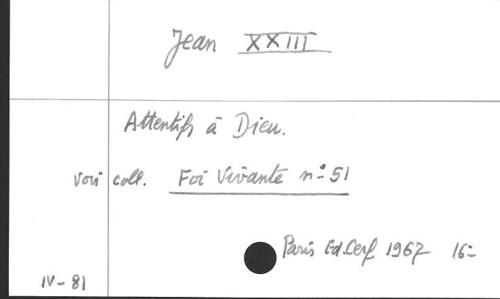 Jean XXIII
Attentifs à Dieu.
voir coll. Foi Vivante n° 51
Paris Ed. Cerf 1967 16=
IV - 81